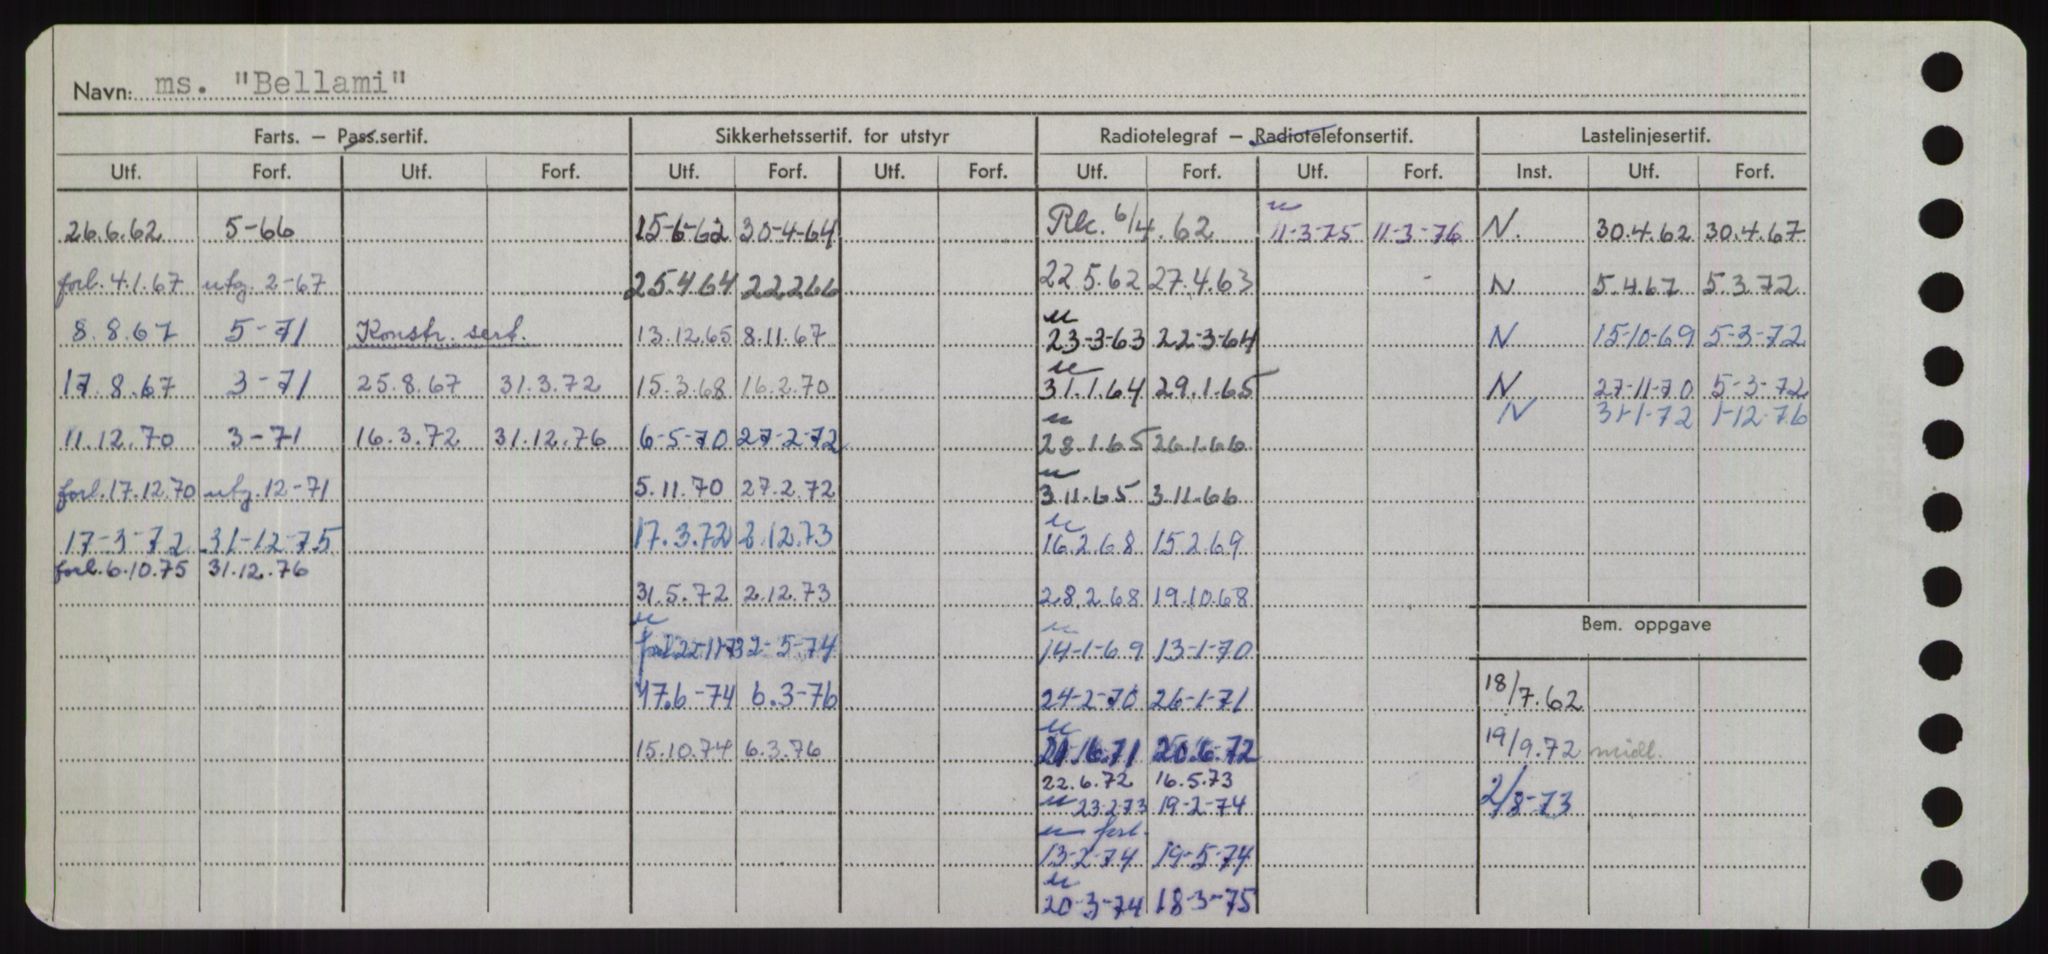 Navn: ms. "Bellami"
Farts. — Pass.sertif. Sikkerhetssertif. for utstyr Radiotelegraf — Radiotelefonsertif. Lastelinjesertif.
Utf. Forf. Utf. Forf. Utf. Forf. Utf. Forf. Utf. Forf. Utf. Forf. Inst. Utf. Forf.
26.6.62 5-66 15-6-62 30-4-64 Rk. 6/4.62 u 11-3-75 11-3-76 N. 30.4.62 30.4.67
forl. 4.1.67 utg. 2-67 25.4 64 22266 22 5.62 27.4.63 N 5.4.67 5.3.72
8.8.67 5-71 Konstr. sert. 13.12.65 8.11.67 u 23-3-63 22-3-64 N 15-10-69 5-3-72
17.8.67 3-71 25.8.67 31.3.72 15.3.68 16.2.70 u 31.1.64 29.1.65 N 27-11-70 5-3-72
N 31-1-72 1-12-76
11.12.70 3-71 16.3.72 31.12.76 6-5-70 27-2-72 u 28.1.65 26.1.66
forl. 17.12.70 utg. 12-71 5.11.70 27.2.72 u 3.11.65 3.11.66
17-3-72 31-12-75 17.3.72 2.12.73 u 16.2.68 15.2.69
forl. 6.10.75 31.12.76
31.5.72 2.12.73 28.2.68 19.10.68
u forl 22-11-73 2-5-74 u 14-1-69 13-1-70
Bem. oppgave
17.6-74 6.3-76 24-2-70 26-1-71 18/7.62
15.10.74 6.3.76 u 21.6.71 20.6.72 19/9.72 midl.
22.6.72 16.5.73
u 23.2.73 19-2-74 2/8-73
u forl. 13-2-74 19-5-74
u 20-3-74 18-3-75